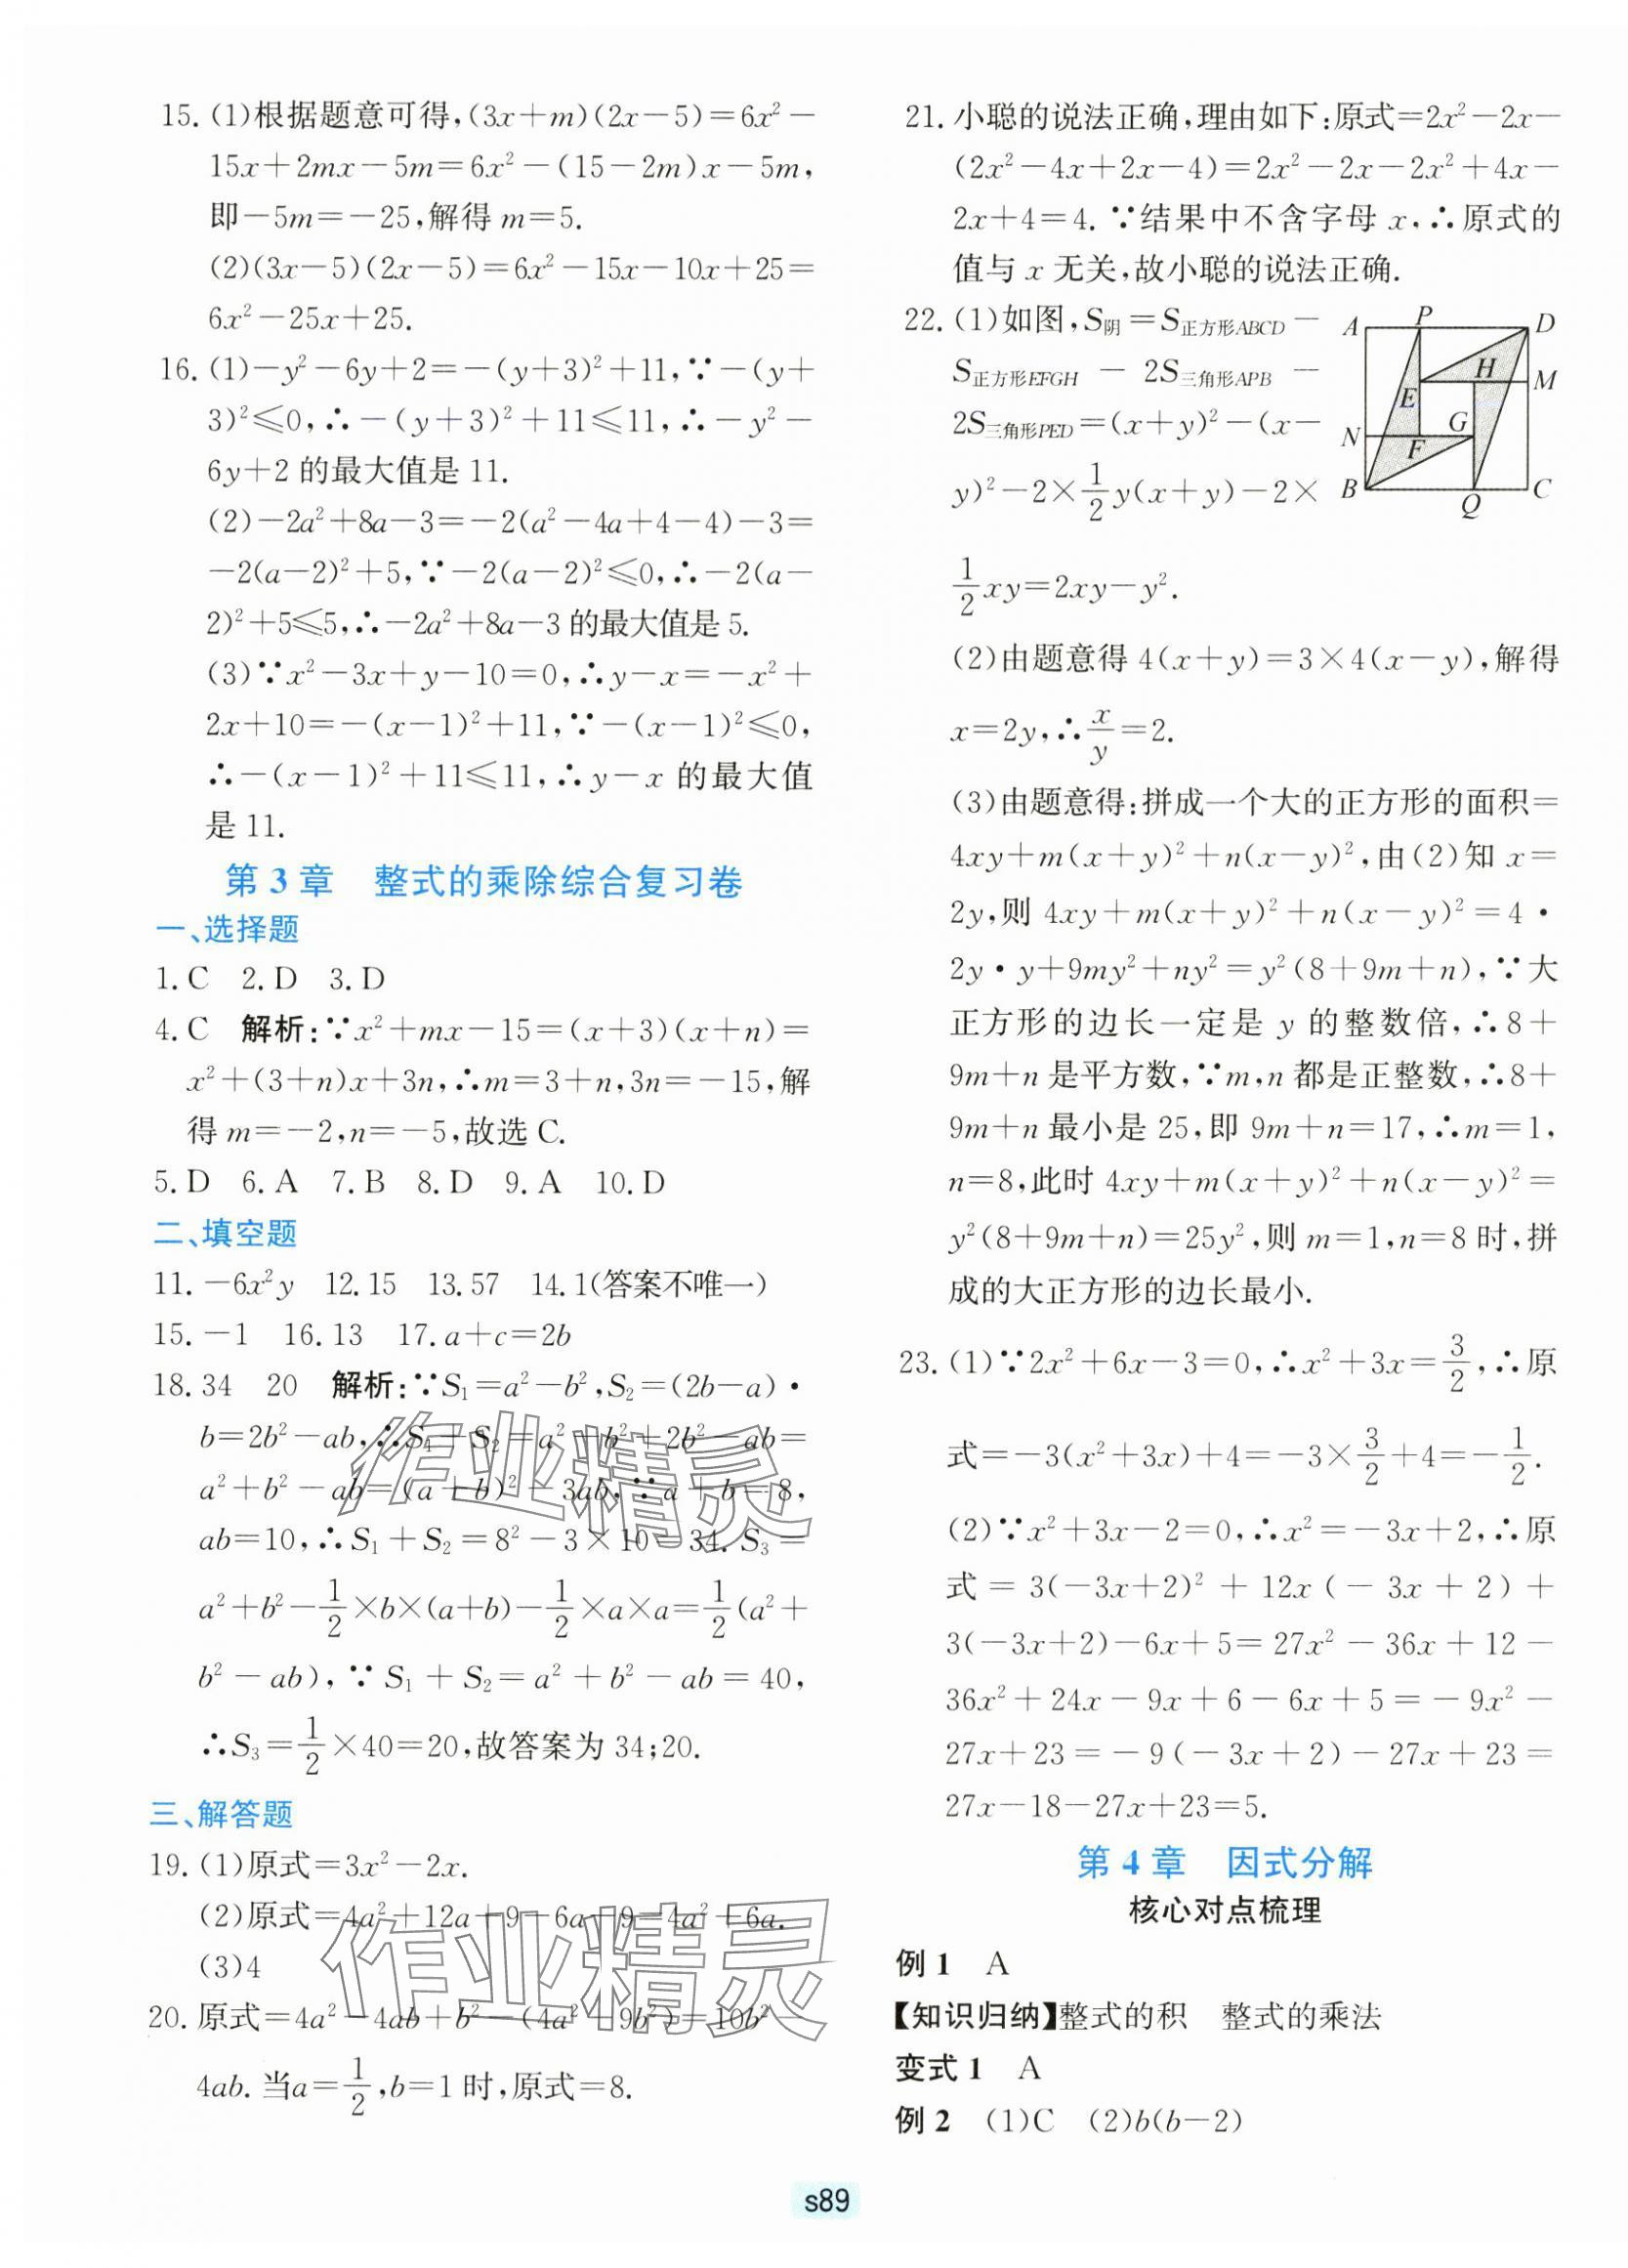 15. (1)根据题意可得,(3x+m)(2x-5)=6x²-
15x+2mx-5m=6x²-(15-2m)x-5m,
即-5m=-25,解得 m=5.
(2)(3x-5)(2x-5)=6x²-15x-10x+25=
6x²-25x+25.
16. (1)-y²-6y+2=-(y+3)²+11,∵-(y+
3)²≤0,∴-(y+3)²+11≤11,∴-y²-
6y+2 的最大值是 11.
(2)-2a²+8a-3=-2(a²-4a+4-4)-3=
-2(a-2)²+5,∵-2(a-2)²≤0,∴-2(a-
2)²+5≤5,∴-2a²+8a-3 的最大值是 5.
(3)∵x²-3x+y-10=0,∴y-x=-x²+
2x+10=-(x-1)²+11,∵-(x-1)²≤0,
∴-(x-1)²+11≤11,∴y-x 的最大值
是 11.
第 3 章 整式的乘除综合复习卷
一、选择题
1. C 2. D 3. D
4. C 解析:∵x²+mx-15=(x+3)(x+n)=
x²+(3+n)x+3n,∴m=3+n,3n=-15,解
得 m=-2,n=-5,故选 C.
5. D 6. A 7. B 8. D 9. A 10. D
二、填空题
11. -6x²y 12. 15 13. 57 14. 1(答案不唯一)
15. -1 16. 13 17. a+c=2b
18. 34 20 解析:∵S₁=a²-b²,S₂=(2b-a)·
b=2b²-ab,∴S₁+S₂=a²-b²+2b²-ab=
a²+b²-ab=(a+b)²-3ab,∵a+b=8,
ab=10,∴S₁+S₂=8²-3×10=34. S₃=
a²+b²-1/2×b×(a+b)-1/2×a×a=1/2(a²+
b²-ab),∵S₁+S₂=a²+b²-ab=40,
∴S₃=1/2×40=20,故答案为 34;20.
三、解答题
19. (1)原式=3x²-2x.
(2)原式=4a²+12a+9-6a-9=4a²+6a.
(3)4
20. 原式=4a²-4ab+b²-(4a²-9b²)=10b²-
4ab. 当a=1/2,b=1 时,原式=8.
21. 小聪的说法正确,理由如下:原式=2x²-2x-
(2x²-4x+2x-4)=2x²-2x-2x²+4x-
2x+4=4. ∵结果中不含字母 x,∴原式的
值与 x 无关,故小聪的说法正确.
22. (1)如图,S阴=S正方形ABCD-
S正方形EFGH-2S三角形APB-
2S三角形PED=(x+y)²-(x-
y)²-2×1/2y(x+y)-2×
1/2xy=2xy-y².
A P D
H M
E
G
N F
B Q C
(2)由题意得 4(x+y)=3×4(x-y),解得
x=2y,∴x/y=2.
(3)由题意得:拼成一个大的正方形的面积=
4xy+m(x+y)²+n(x-y)²,由(2)知 x=
2y,则 4xy+m(x+y)²+n(x-y)²=4·
2y·y+9my²+ny²=y²(8+9m+n),∵大
正方形的边长一定是 y 的整数倍,∴8+
9m+n 是平方数,∵m,n 都是正整数,∴8+
9m+n 最小是 25,即 9m+n=17,∴m=1,
n=8,此时 4xy+m(x+y)²+n(x-y)²=
y²(8+9m+n)=25y²,则 m=1,n=8 时,拼
成的大正方形的边长最小.
23. (1)∵2x²+6x-3=0,∴x²+3x=3/2,∴原
式=-3(x²+3x)+4=-3×3/2+4=-1/2.
(2)∵x²+3x-2=0,∴x²=-3x+2,∴原
式=3(-3x+2)²+12x(-3x+2)+
3(-3x+2)-6x+5=27x²-36x+12-
36x²+24x-9x+6-6x+5=-9x²-
27x+23=-9(-3x+2)-27x+23=
27x-18-27x+23=5.
第 4 章 因式分解
核心对点梳理
例 1 A
【知识归纳】整式的积 整式的乘法
变式 1 A
例 2 (1)C (2)b(b-2)
s89
作业精灵
作业精灵